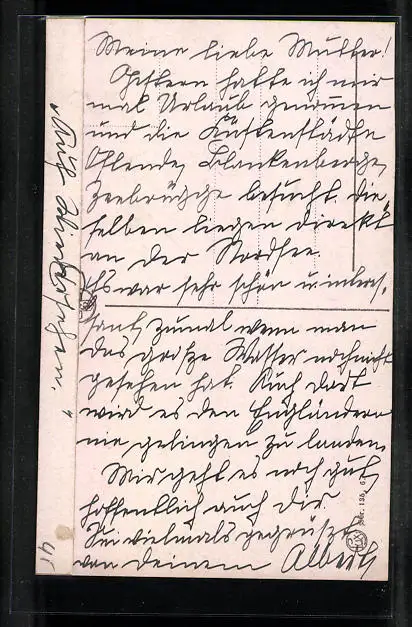 Meine liebe Mutter!
Gestern hatte ich mir
mal Urlaub genommen
und die Küstenstädte
Ostende, Blankenberge,
Zeebrügge besucht die-
selben liegen direkt
an der Nordsee.
Es war sehr schön u. interes-
sant, zumal wenn man
das große Wasser noch nicht
gesehen hat. Auch dort
wird es den Engländern
nie gelingen zu landen.
Mir geht es noch gut,
hoffentlich auch dir.
Sei vielmals gegrüßt
von deinem Albert
Auf Wiedersehen!